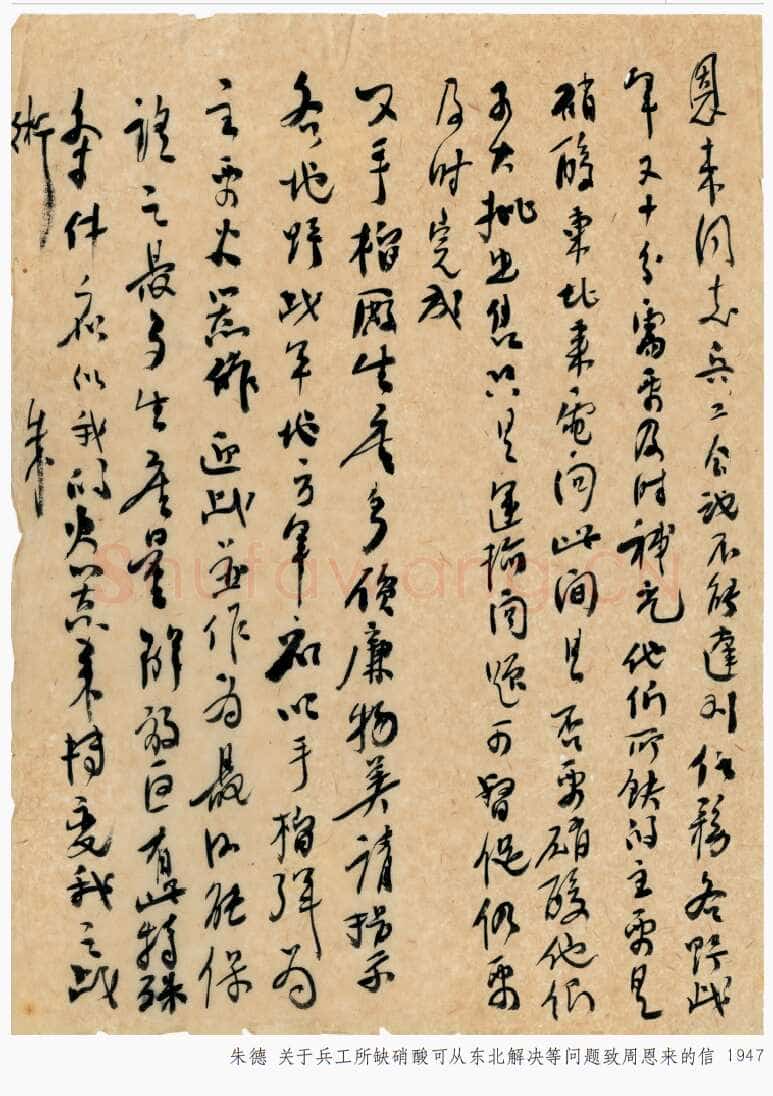 恩来同志兵工会議不能達到任務各野战
軍又十分需要及时補充他们所缺的主要是
硝酸東北来電问此间是否要硝酸他们
可大批出售只是運输问题可督促仍要
及时完成
又手榴廠生產多價廉物美请指示
各地野战軍地方軍應以手榴弹为
主要火器作近战並作为最
之最多生產量解放区有此特殊
条件應以我的火器来轉变我之战
術
朱
Shufawang.CN
朱德 关于兵工所缺硝酸可从东北解决等问题致周恩来的信 1947